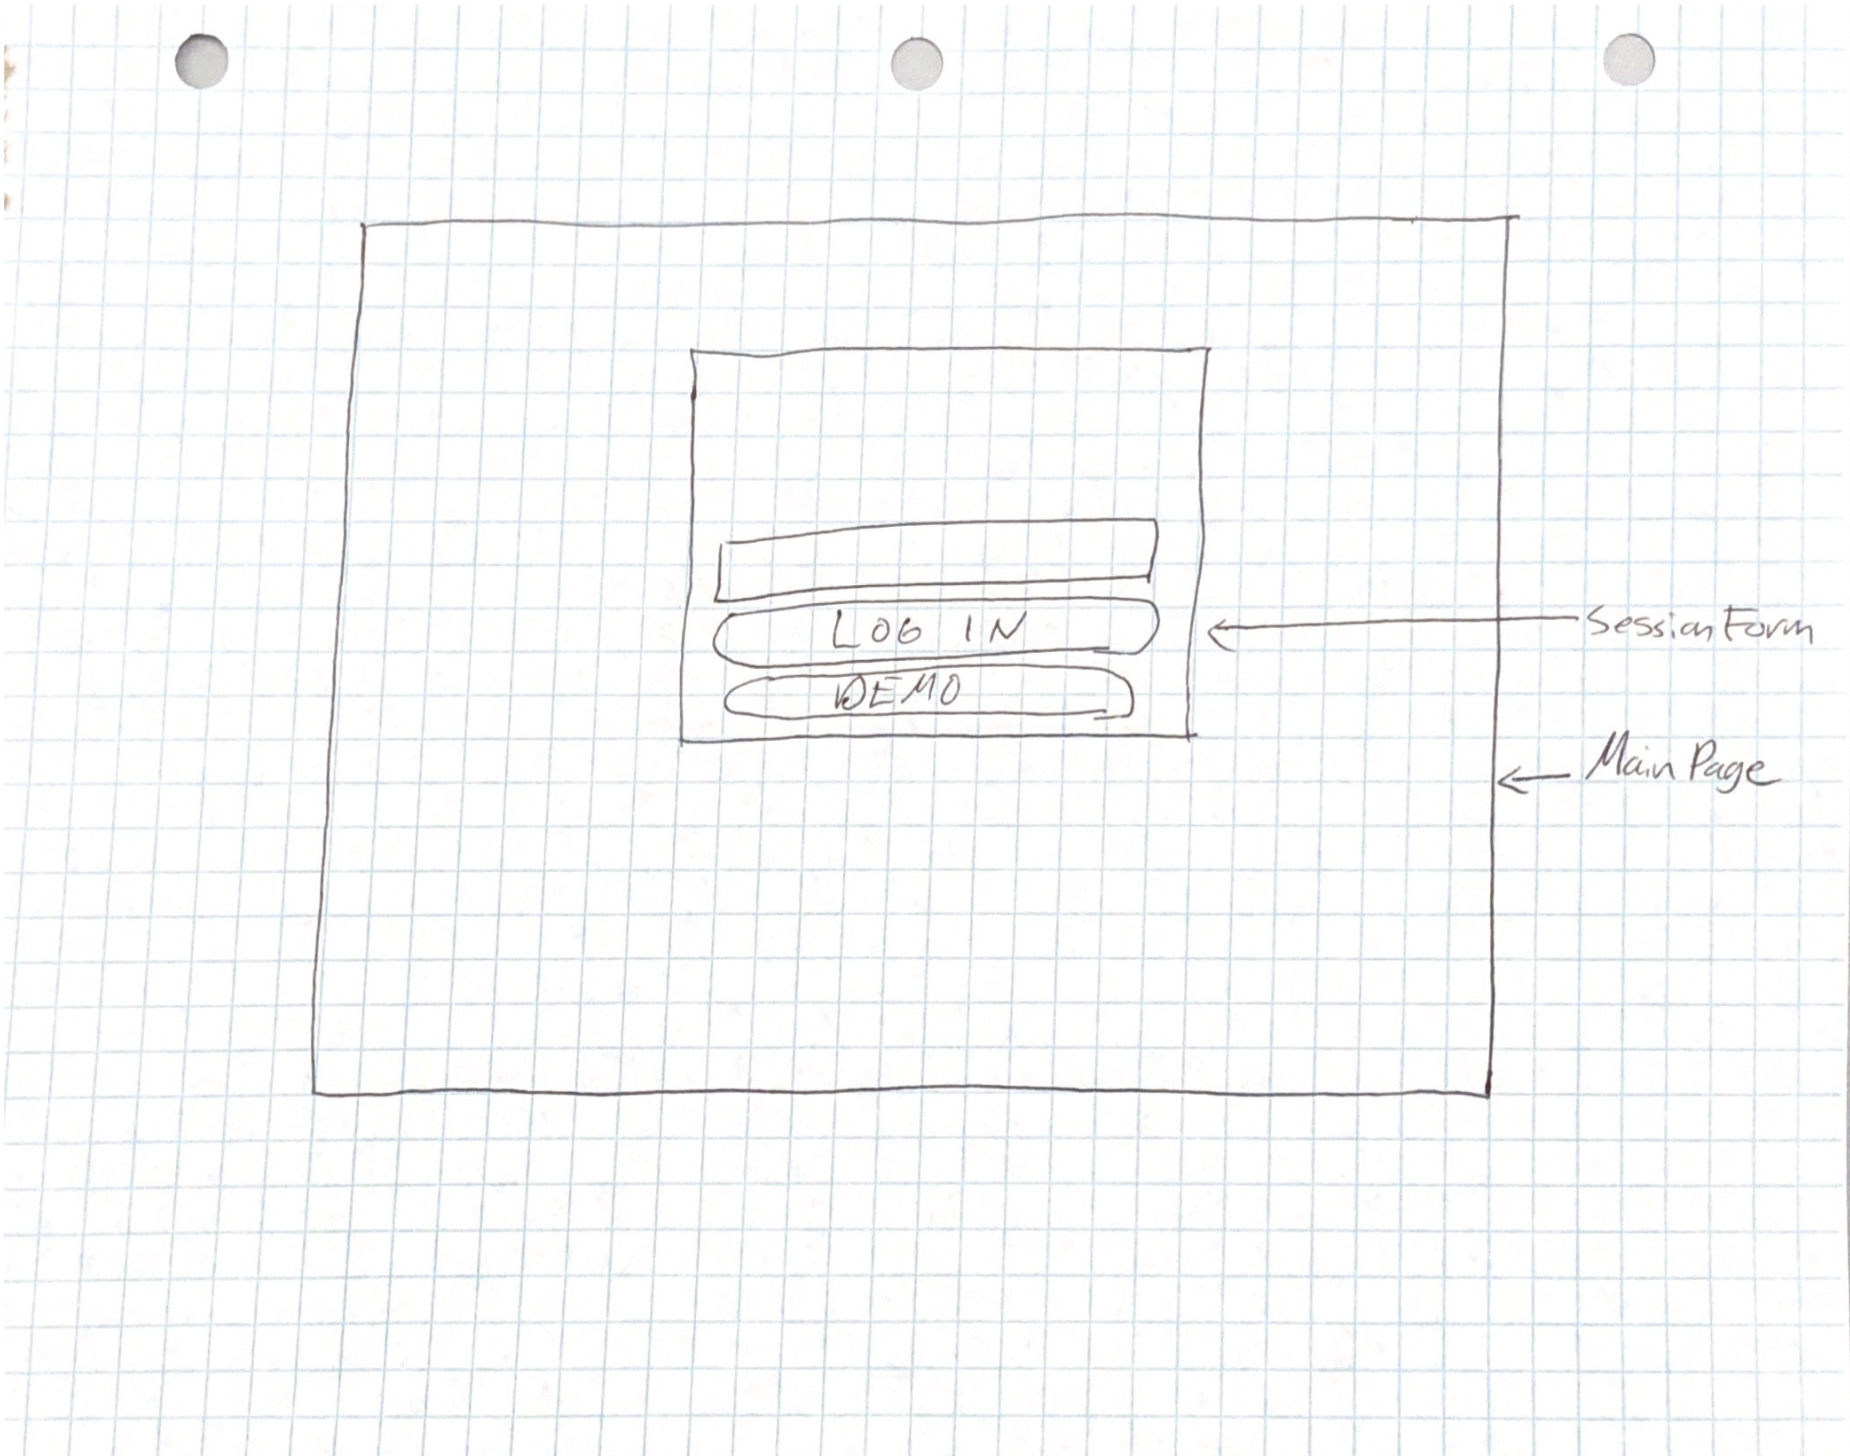 LOG IN
DEMO
Session Form
Main Page